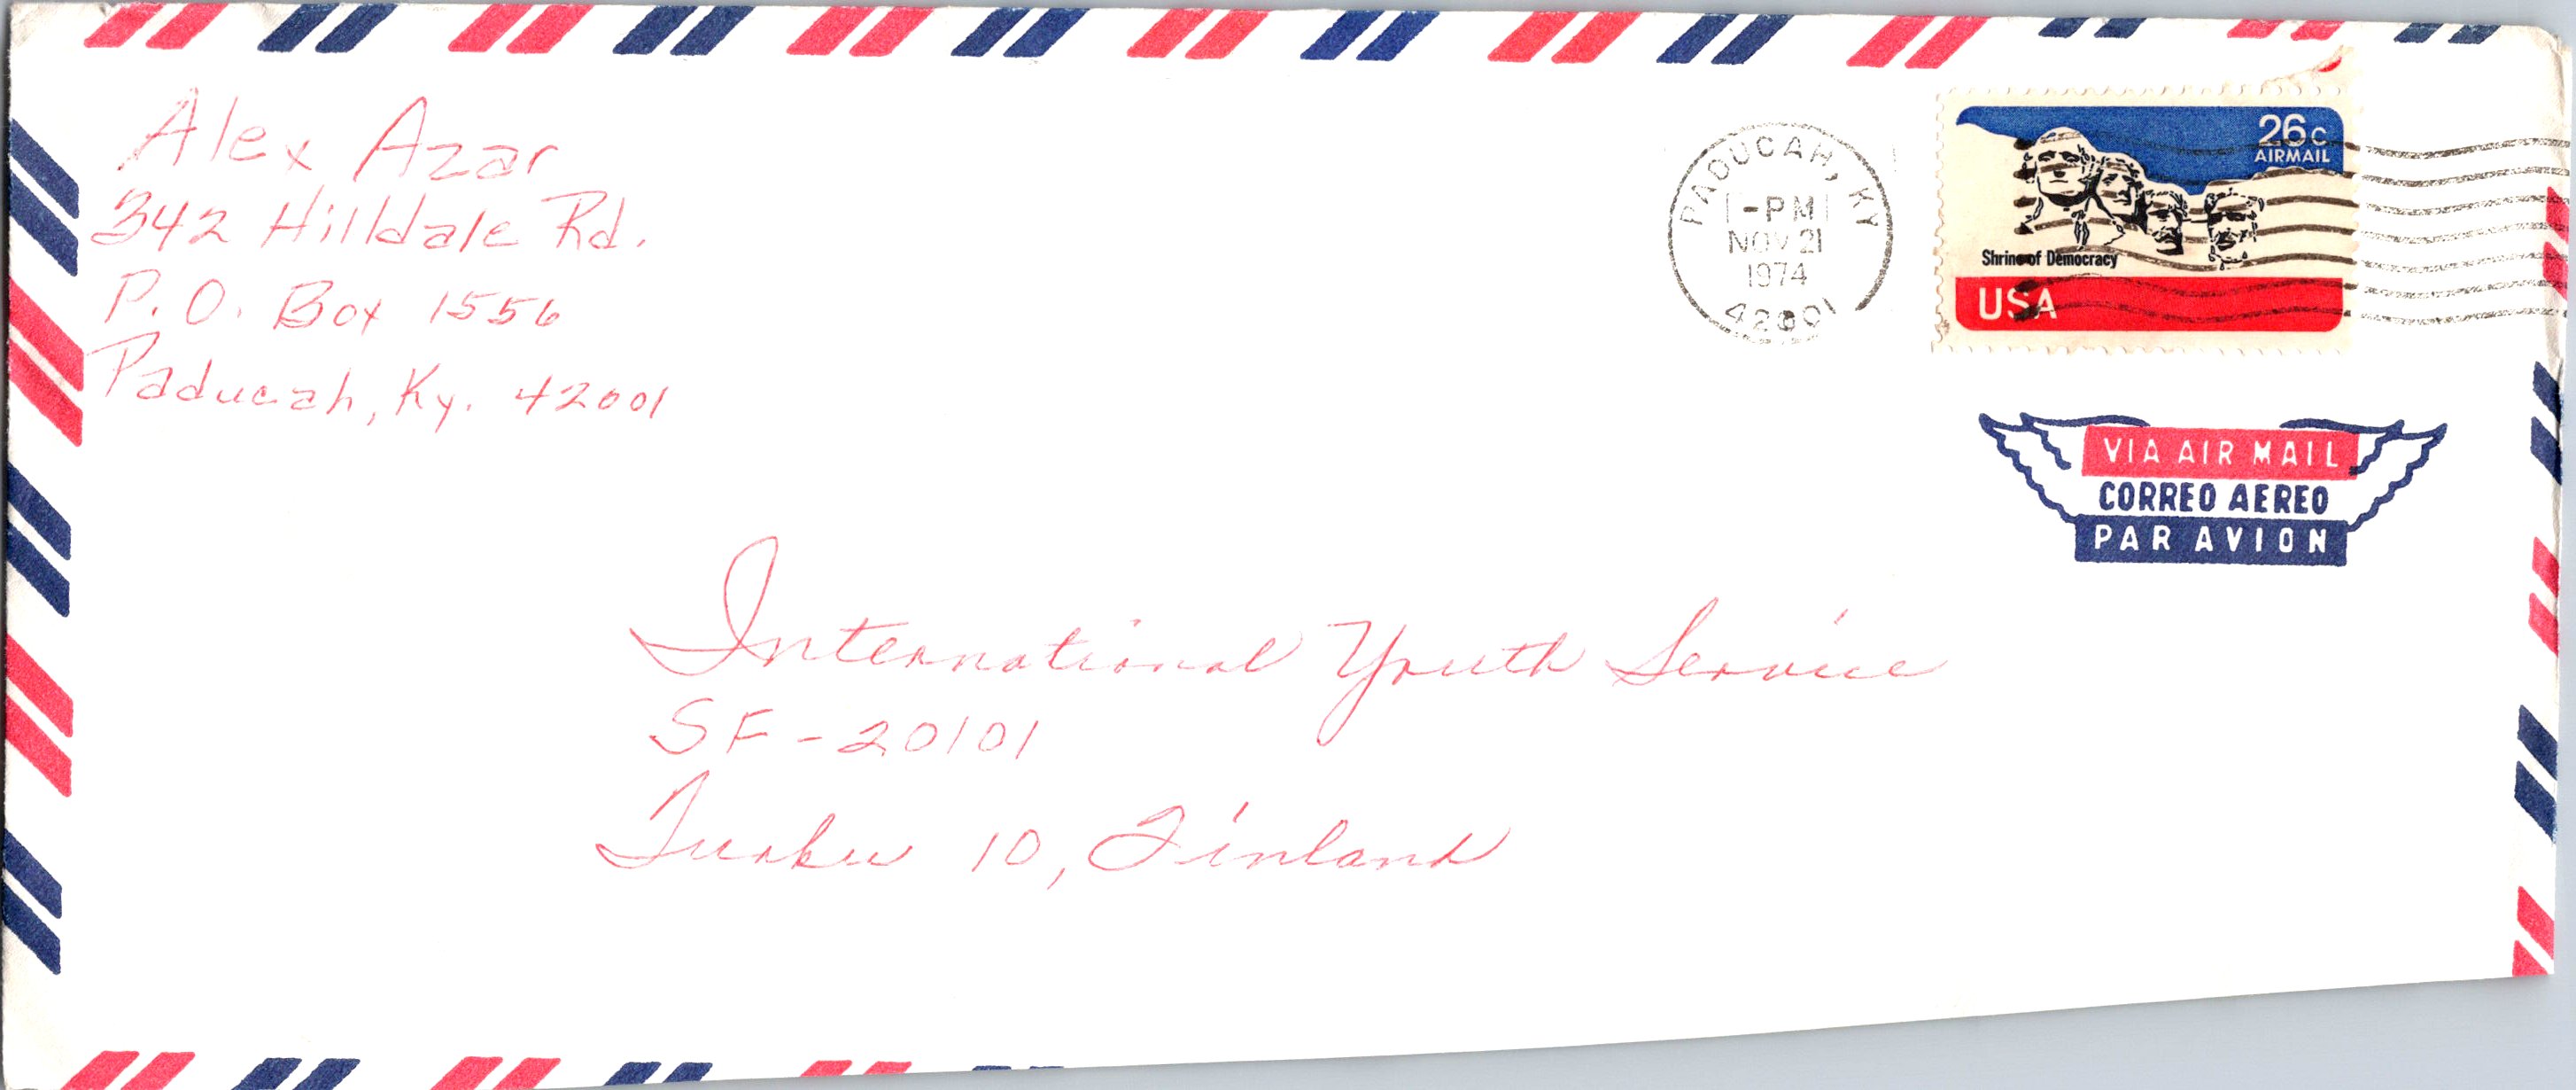 Alex Azar
342 Hilldale Rd.
P. O. Box 1556
Paducah, Ky. 42001
PADUCAH, KY
-PM
NOV 21
1974
42001
26c
AIRMAIL
Shrine of Democracy
USA
VIA AIR MAIL
CORREO AEREO
PAR AVION
International Youth Service
SF-20101
Turku 10, Finland